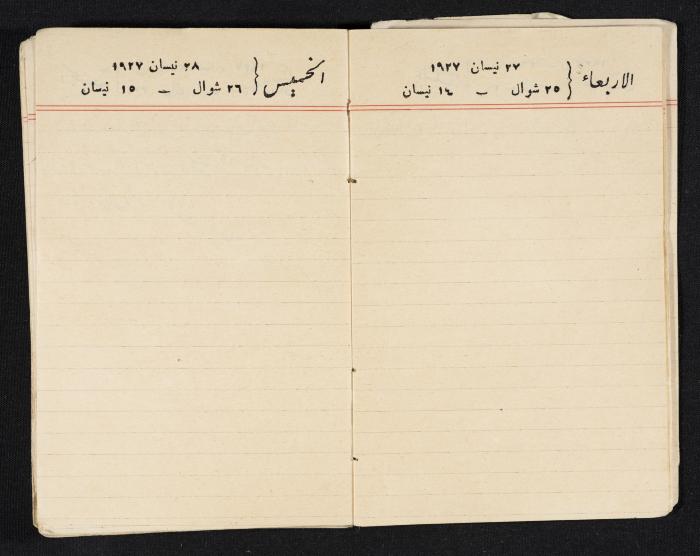 الاربعاء { ٢٧ نيسان ١٩٢٧
٢٥ شوال – ١٤ نيسان
الخميس { ٢٨ نيسان ١٩٢٧
٢٦ شوال – ١٥ نيسان